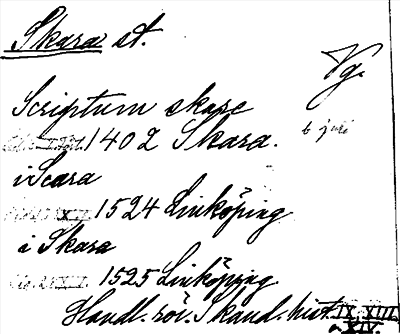 Skara st.
Vg.
Scriptum skare
1402 Skara. 6 juli
i Scara
1524 Linköping
i Skara
1525 Linköping
Handl. rör. Skand. hist. IX. XIII.
o. XIV.